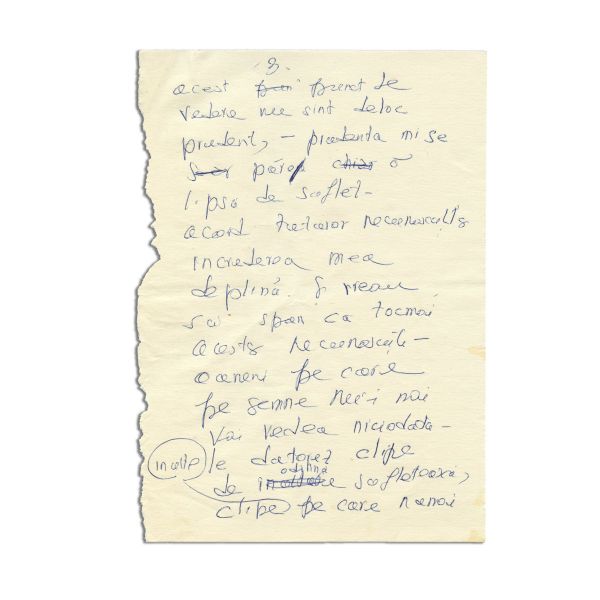 3.
acest punct de
vedere nu sint deloc
prudent, – prudenta mi se
pare o
lipsa de suflet –
acord tuturor necunoscuti
increderea mea
deplină. Și vreau
sa spun ca tocmai
acesti necunoscuti –
oameni pe care
pe semne nu-i mai
vai vedea niciodata –
le datorez clipe
de odihna sufleteasca,
clipe pe care numai